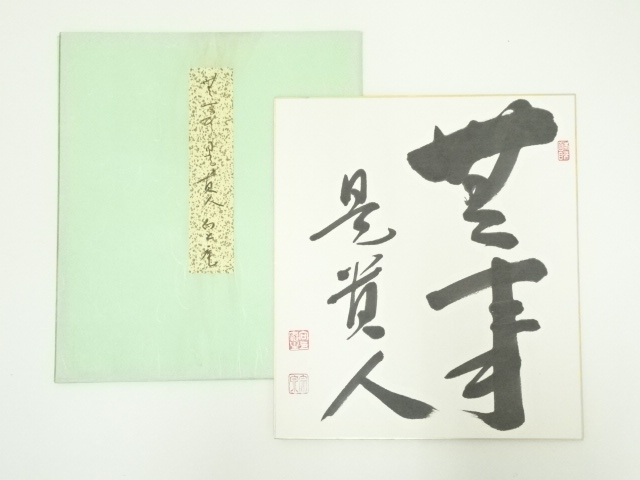 無事是貴人
無事
是貴人